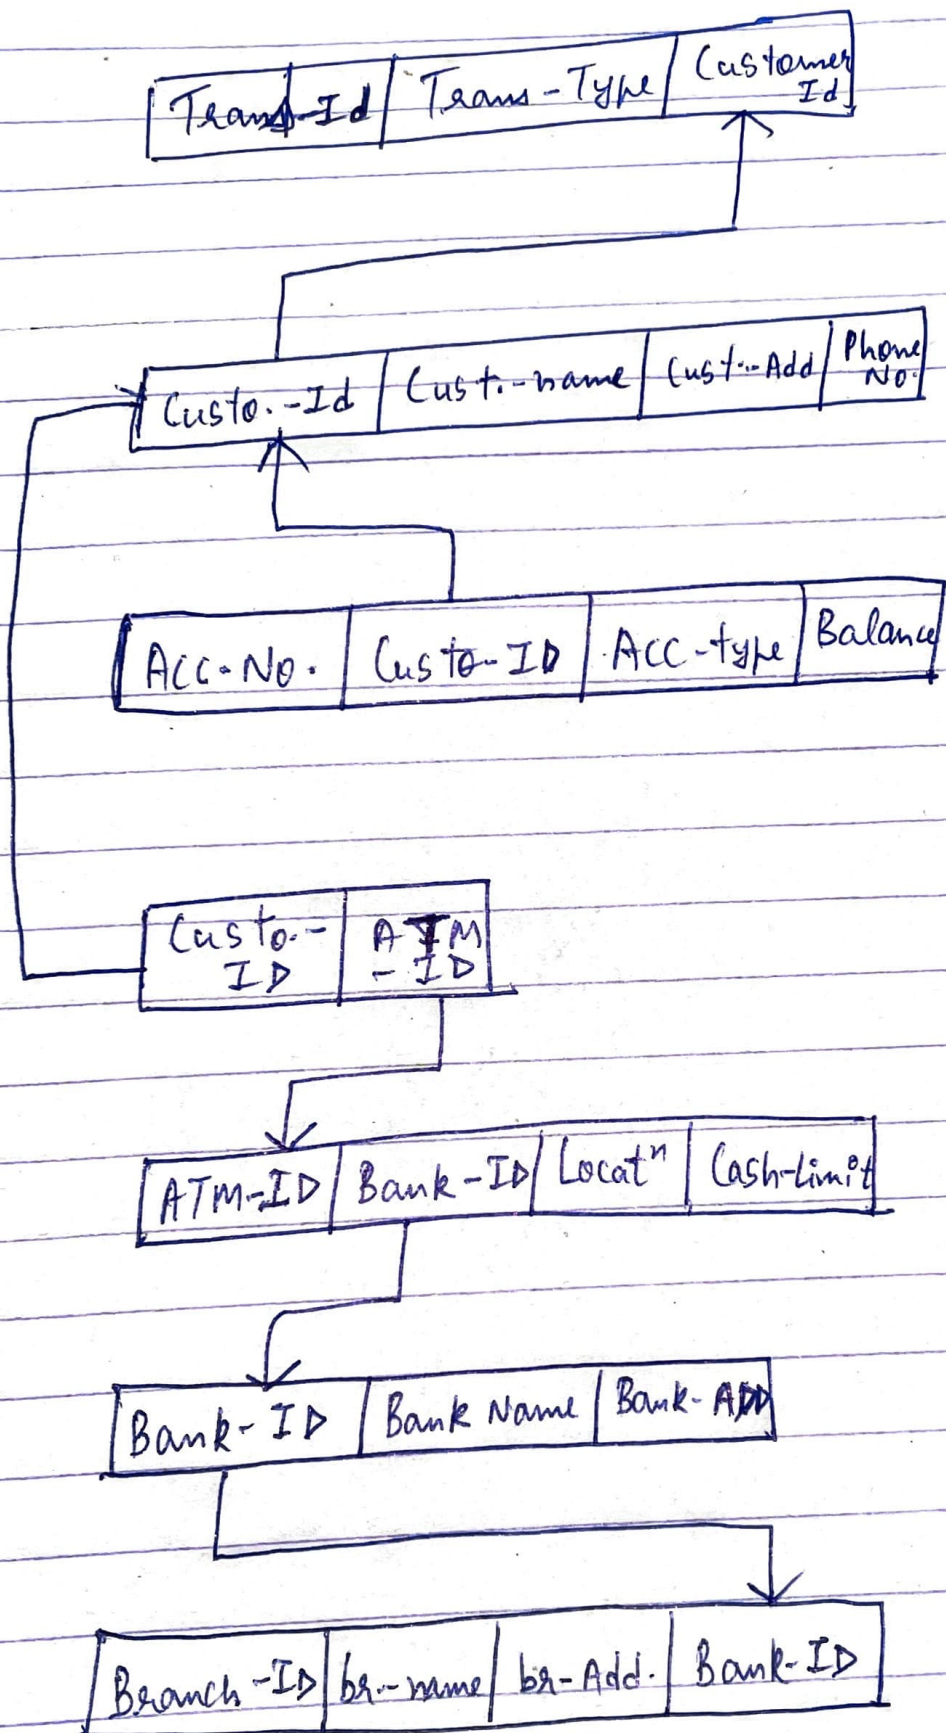 Trans-Id Trans-Type Customer Id
Custo.-Id Cust.-name Cust.-Add Phone No.
Acc-No. Custo-ID Acc-type Balance
Custo.-ID ATM-ID
ATM-ID Bank-ID Locatⁿ Cash-limit
Bank-ID Bank Name Bank-ADD
Branch-ID br.-name br-Add. Bank-ID